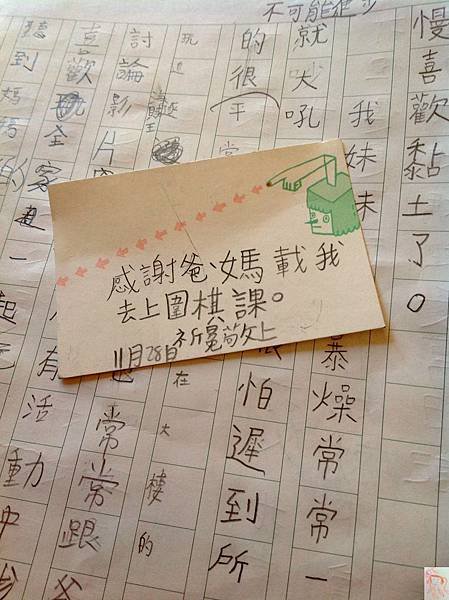 感謝爸、媽載我
去上圍棋課。
祈冕敬上
11月28日
不可能
慢喜歡黏土了。
我妹妹
暴燥常常一
就大吼
怕遲到所
的很平常
在大樓的
討論影片
常常跟
喜歡玩全家
有活動中
聽到媽媽的
一起